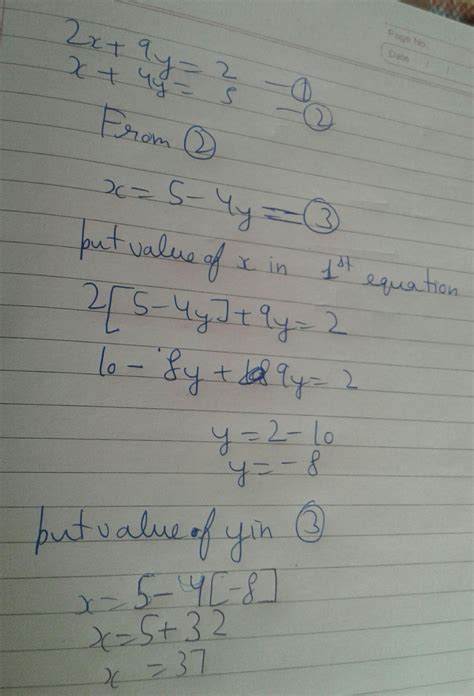 Page No.
Date / /
2x + 9y = 2 — ①
x + 4y = 5 — ②
From ②
x = 5 - 4y — ③
put value of x in 1st equation
2[5-4y] + 9y = 2
10 - 8y + 9y = 2
y = 2 - 10
y = - 8
put value of y in ③
x = 5 - 4[-8]
x = 5 + 32
x = 37